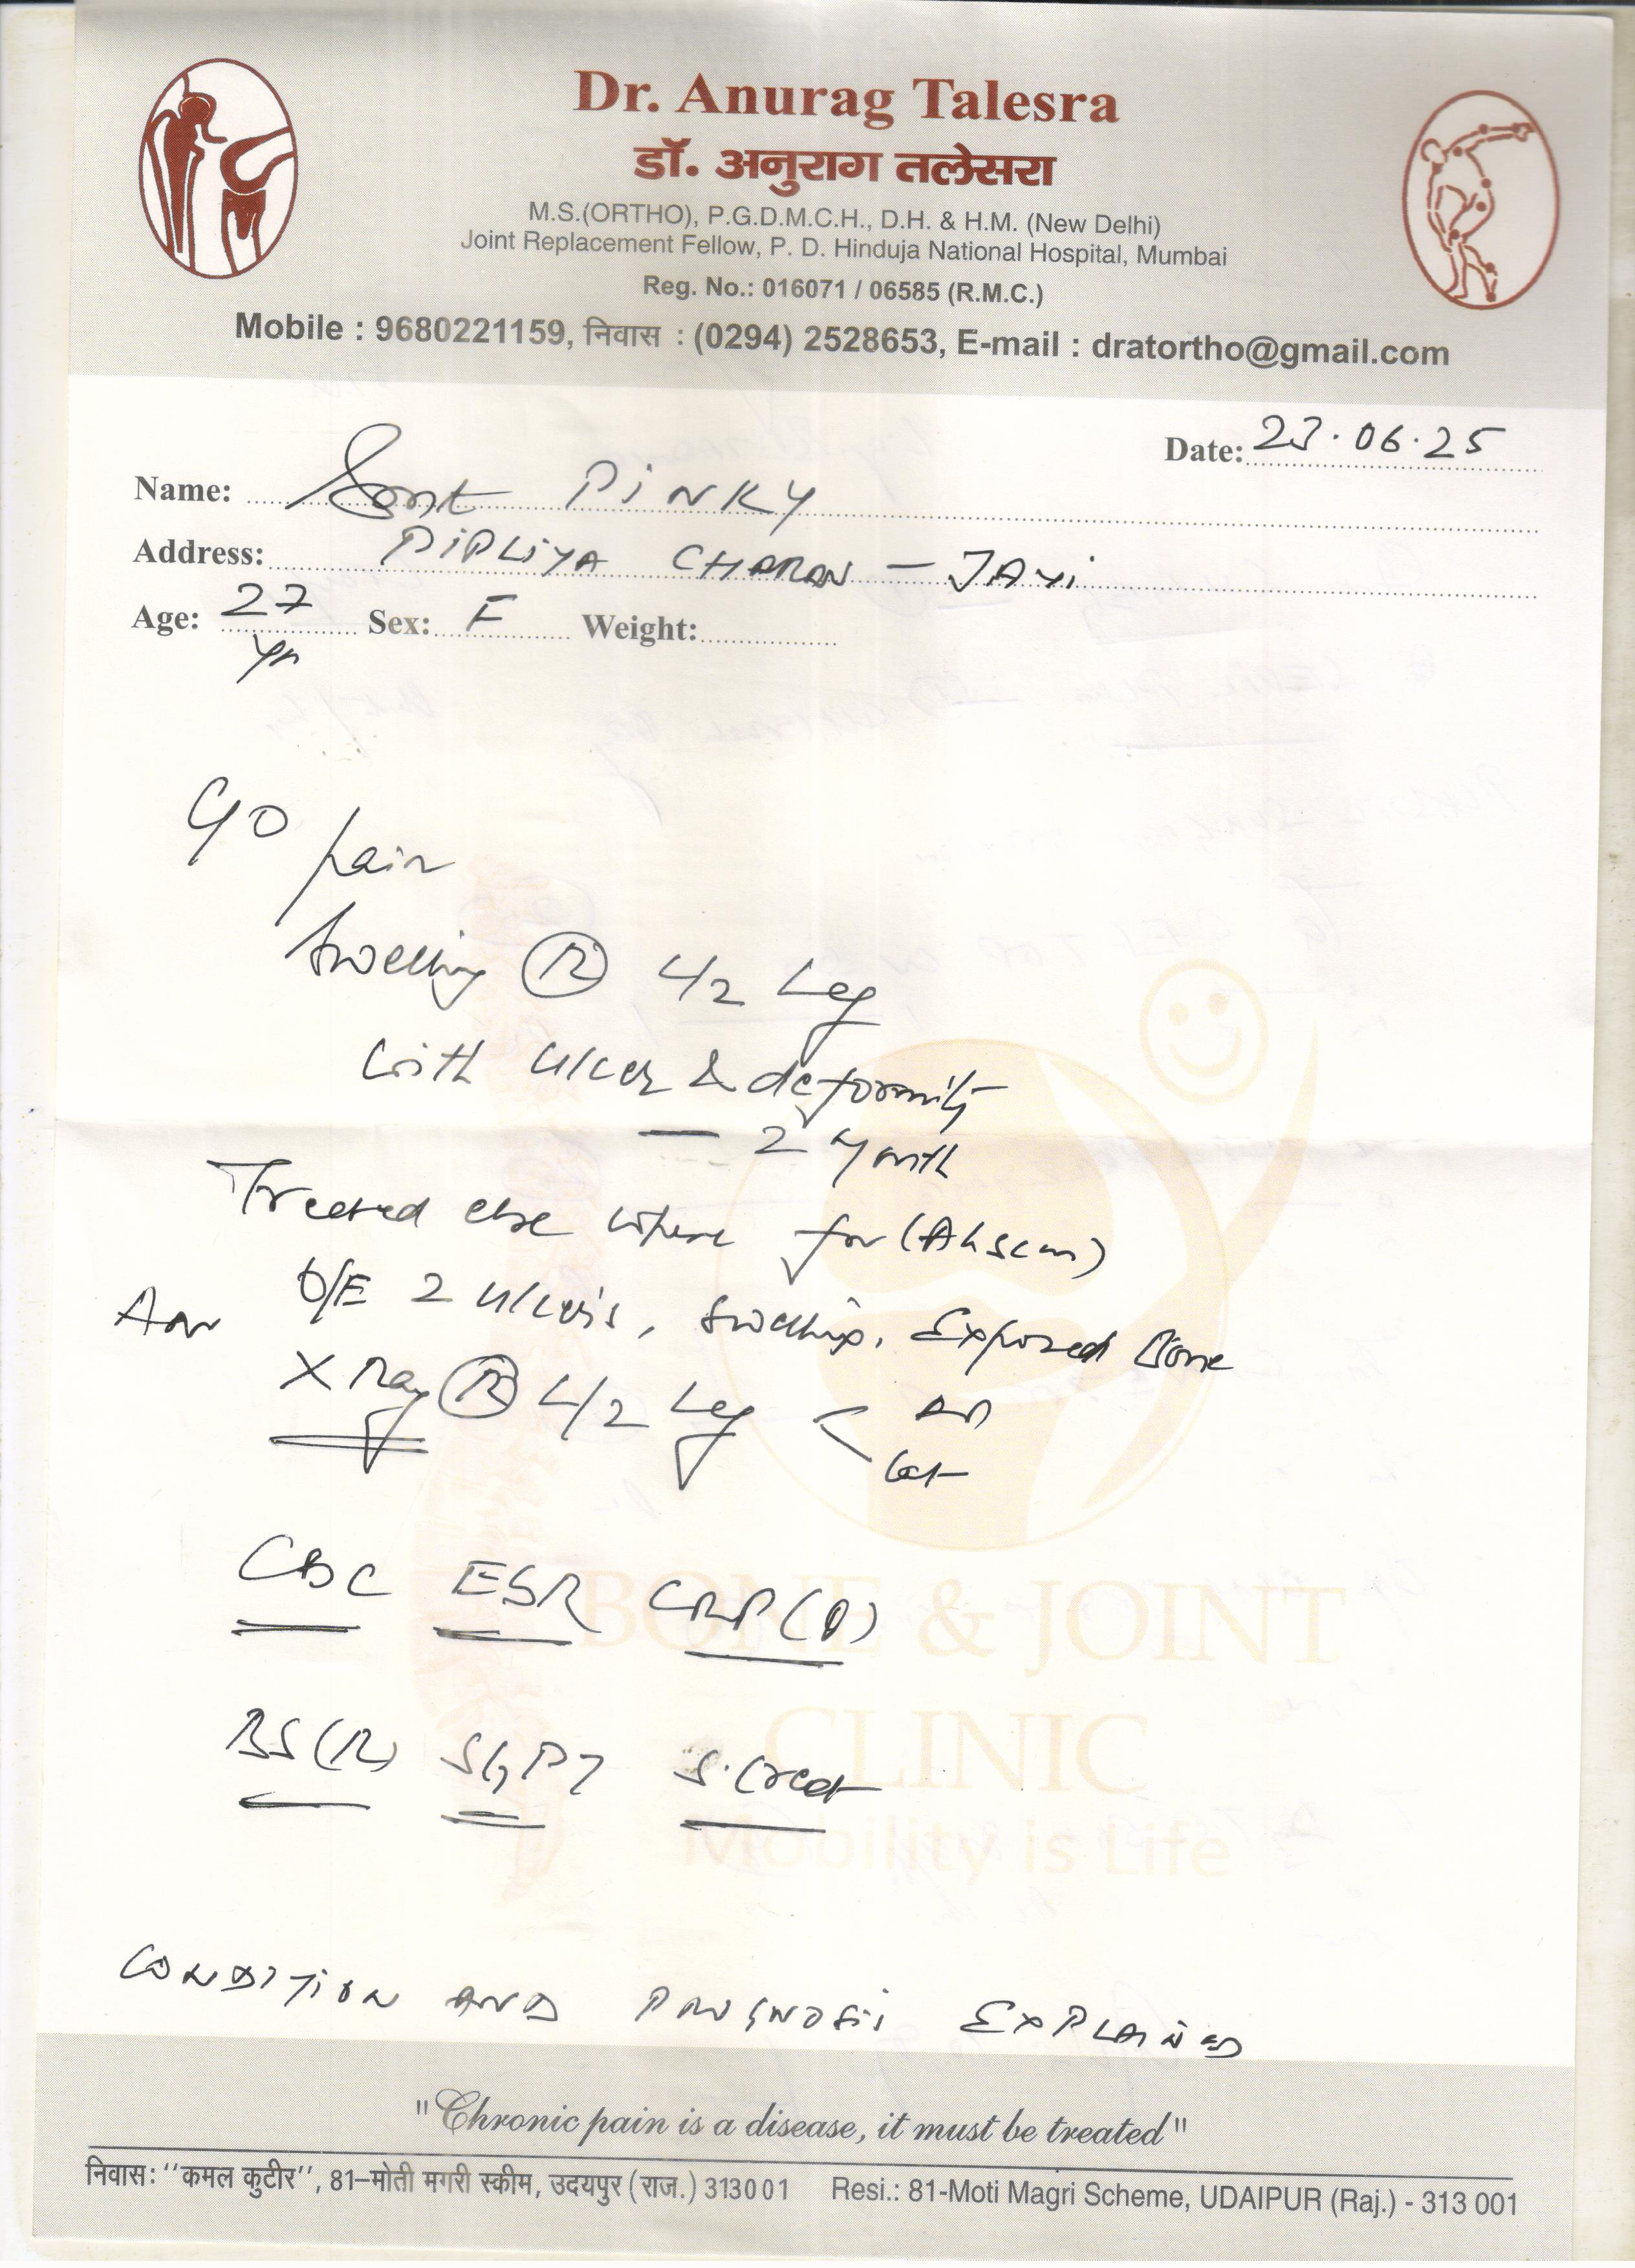 Dr. Anurag Talesra
डॉ. अनुराग तलेसरा
M.S.(ORTHO), P.G.D.M.C.H., D.H. & H.M. (New Delhi)
Joint Replacement Fellow, P. D. Hinduja National Hospital, Mumbai
Reg. No.: 016071 / 06585 (R.M.C.)
Mobile : 9680221159, निवास : (0294) 2528653, E-mail : dratortho@gmail.com
Date: 23.06.25
Name: Smt PINKY
Address: PIPLIYA CHARAN -
Age: 27 Sex: F Weight:
Yr
C/O
pain
Swelling (R) L/2 Leg
with ulcer & deformity
— 2 Month
Treated else where for (Abscess)
O/E 2 ulcers, swelling, Exposed Bone
Adv
X Ray (R) L/2 Leg < AP
Lat
CBC ESR CRP(Q)
BS(R) SGPT S.Creat
BONE & JOINT
CLINIC
Mobility is Life
CONDITION AND PROGNOSIS EXPLAINED
"Chronic pain is a disease, it must be treated"
निवास: ''कमल कुटीर'', 81–मोती मगरी स्कीम, उदयपुर (राज.) 313001 Resi.: 81-Moti Magri Scheme, UDAIPUR (Raj.) - 313 001